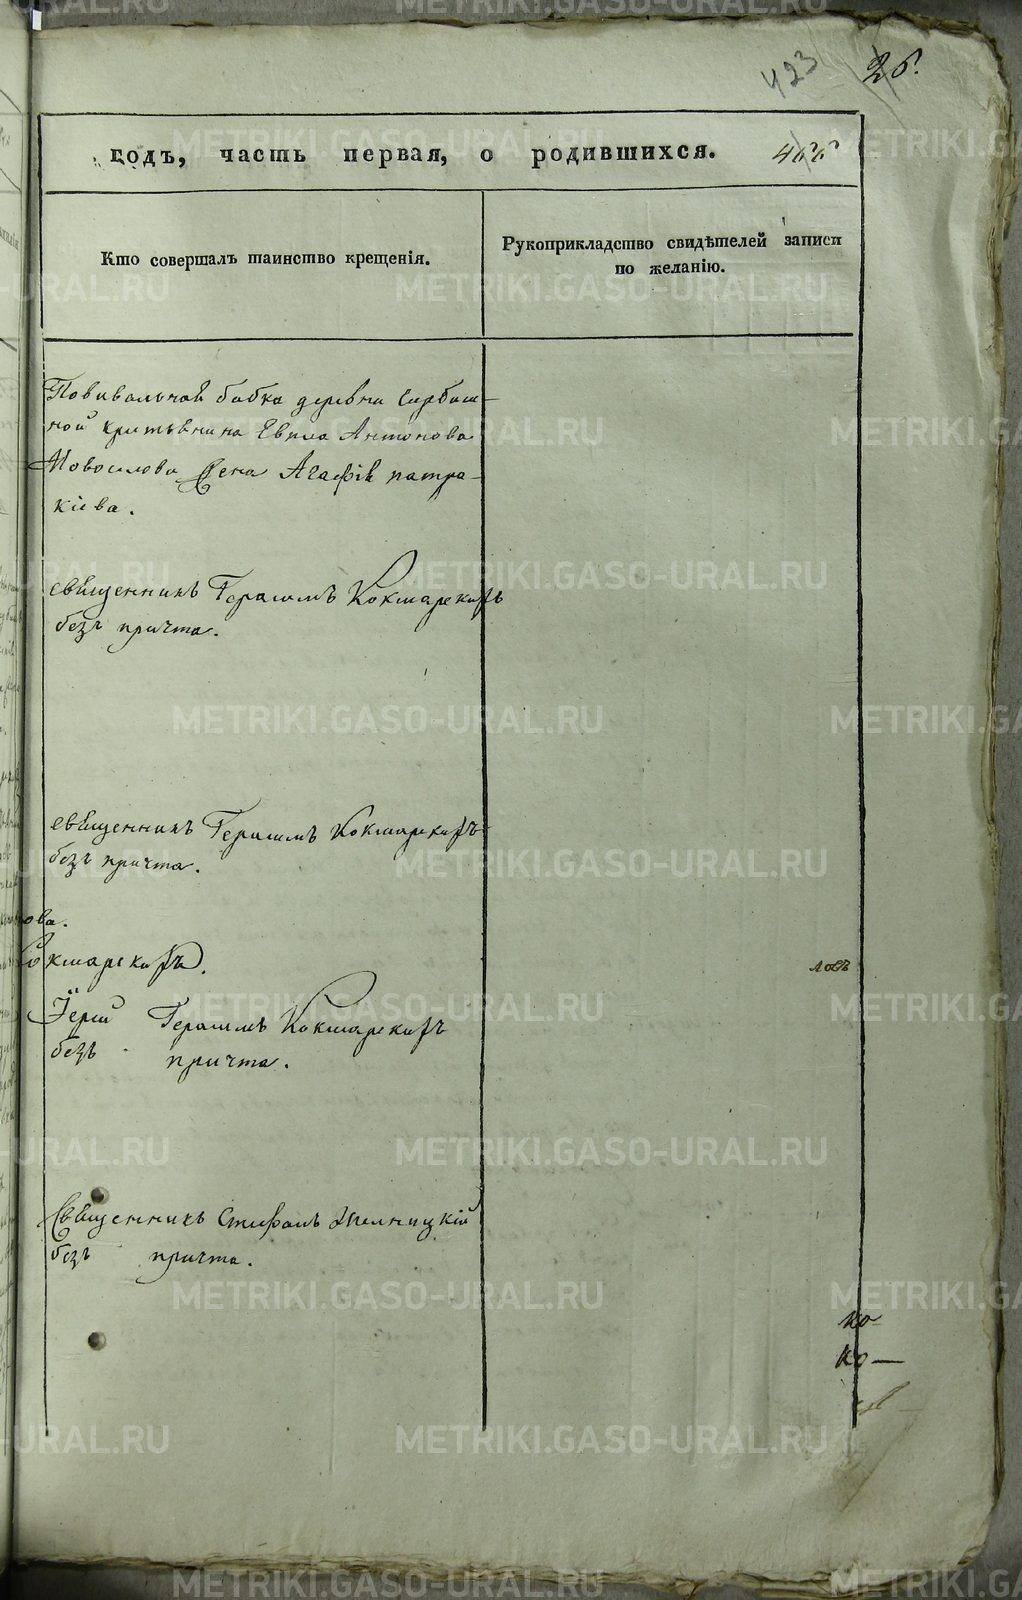 423
26.
годъ, часть первая, о родившихся.
466
Кто совершалъ таинство крещенія.
Рукоприкладство свидѣтелей записи
по желанію.
Повивальная бабка деревни
ной крестьянина Евпла Антонова
Новоселова жена Агафія патра-
кіева.
священникъ Герасимъ Кокшарскихъ
безъ причта.
священникъ Герасимъ Кокшарскихъ
безъ причта.
ова.
Кокшарскихъ.
Іерей Герасимъ Кокшарскихъ
безъ причта.
Священникъ Стефанъ
безъ причта.
ловъ
ко-
ко-
METRIKI.GASO-URAL.RU